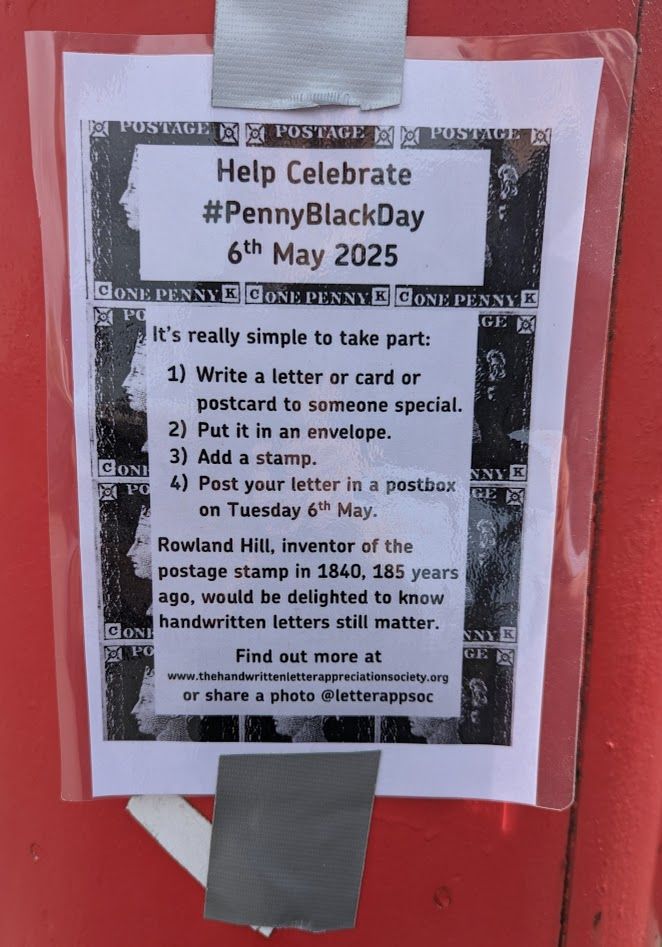 POSTAGE POSTAGE POSTAGE
Help Celebrate
#PennyBlackDay
6th May 2025
C ONE PENNY K C ONE PENNY K C ONE PENNY K
PO GE
It's really simple to take part:
1) Write a letter or card or
postcard to someone special.
2) Put it in an envelope.
3) Add a stamp.
4) Post your letter in a postbox
on Tuesday 6th May.
C ONE NNY K
PO GE
Rowland Hill, inventor of the
postage stamp in 1840, 185 years
ago, would be delighted to know
handwritten letters still matter.
C ON NNY K
PO GE
Find out more at
www.thehandwrittenletterappreciationsociety.org
or share a photo @letterappsoc